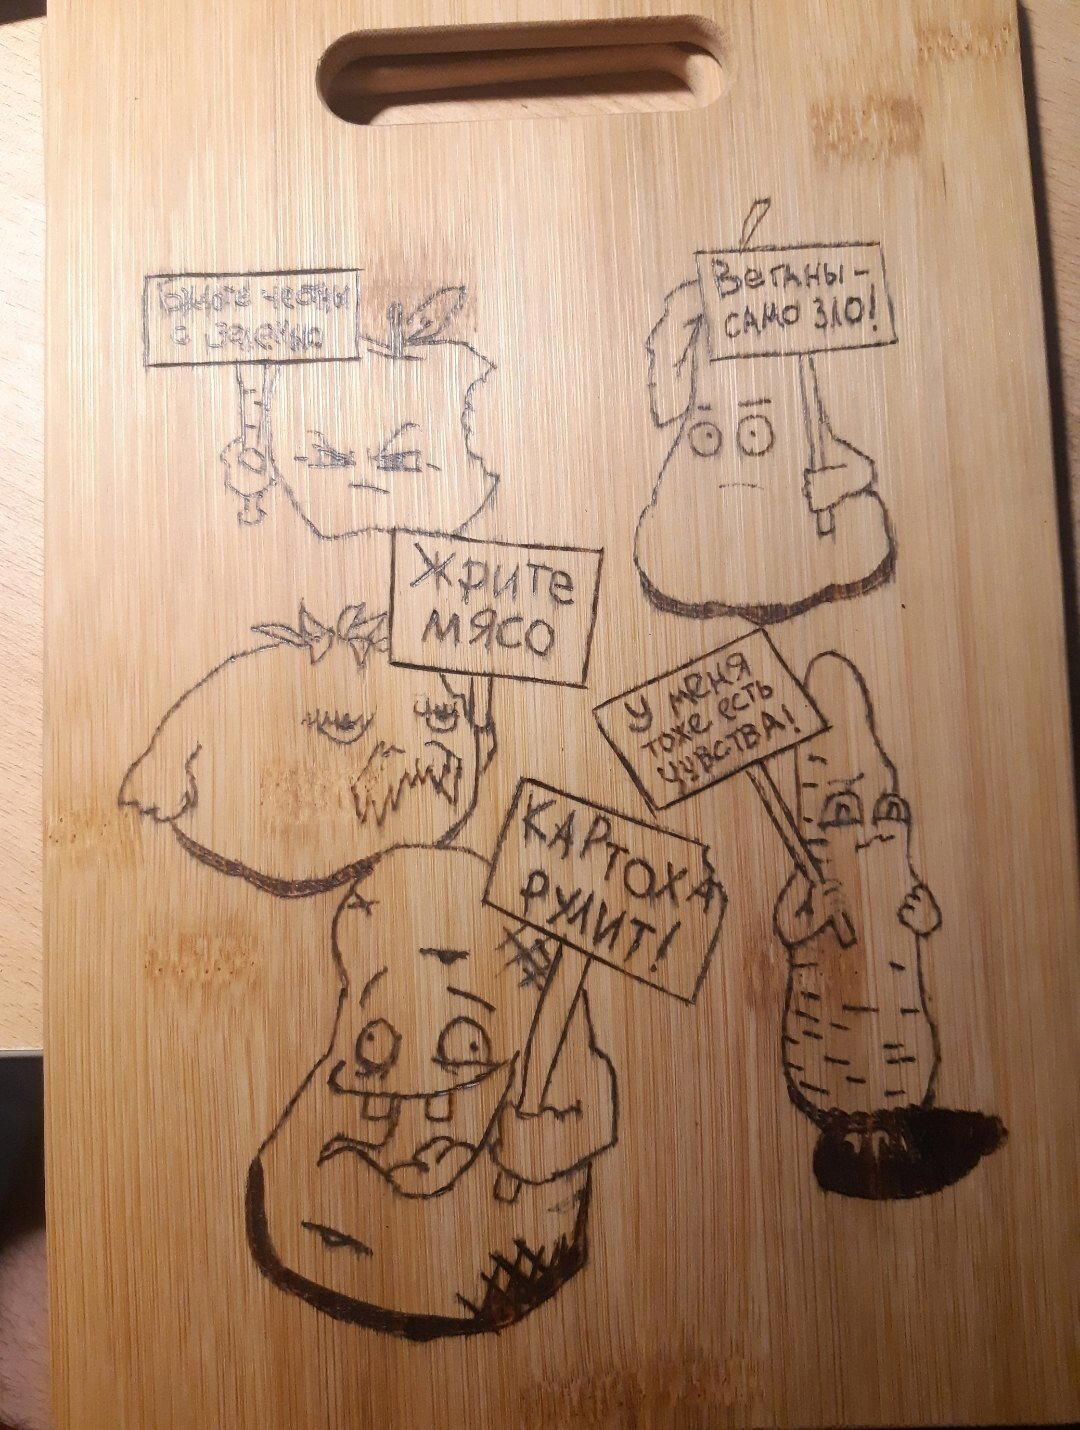 Будьте честны
с зеленью
Веганы-
само зло!
Жрите
мясо
У меня
тоже есть
чувства!
КАРТОХА
РУЛИТ!